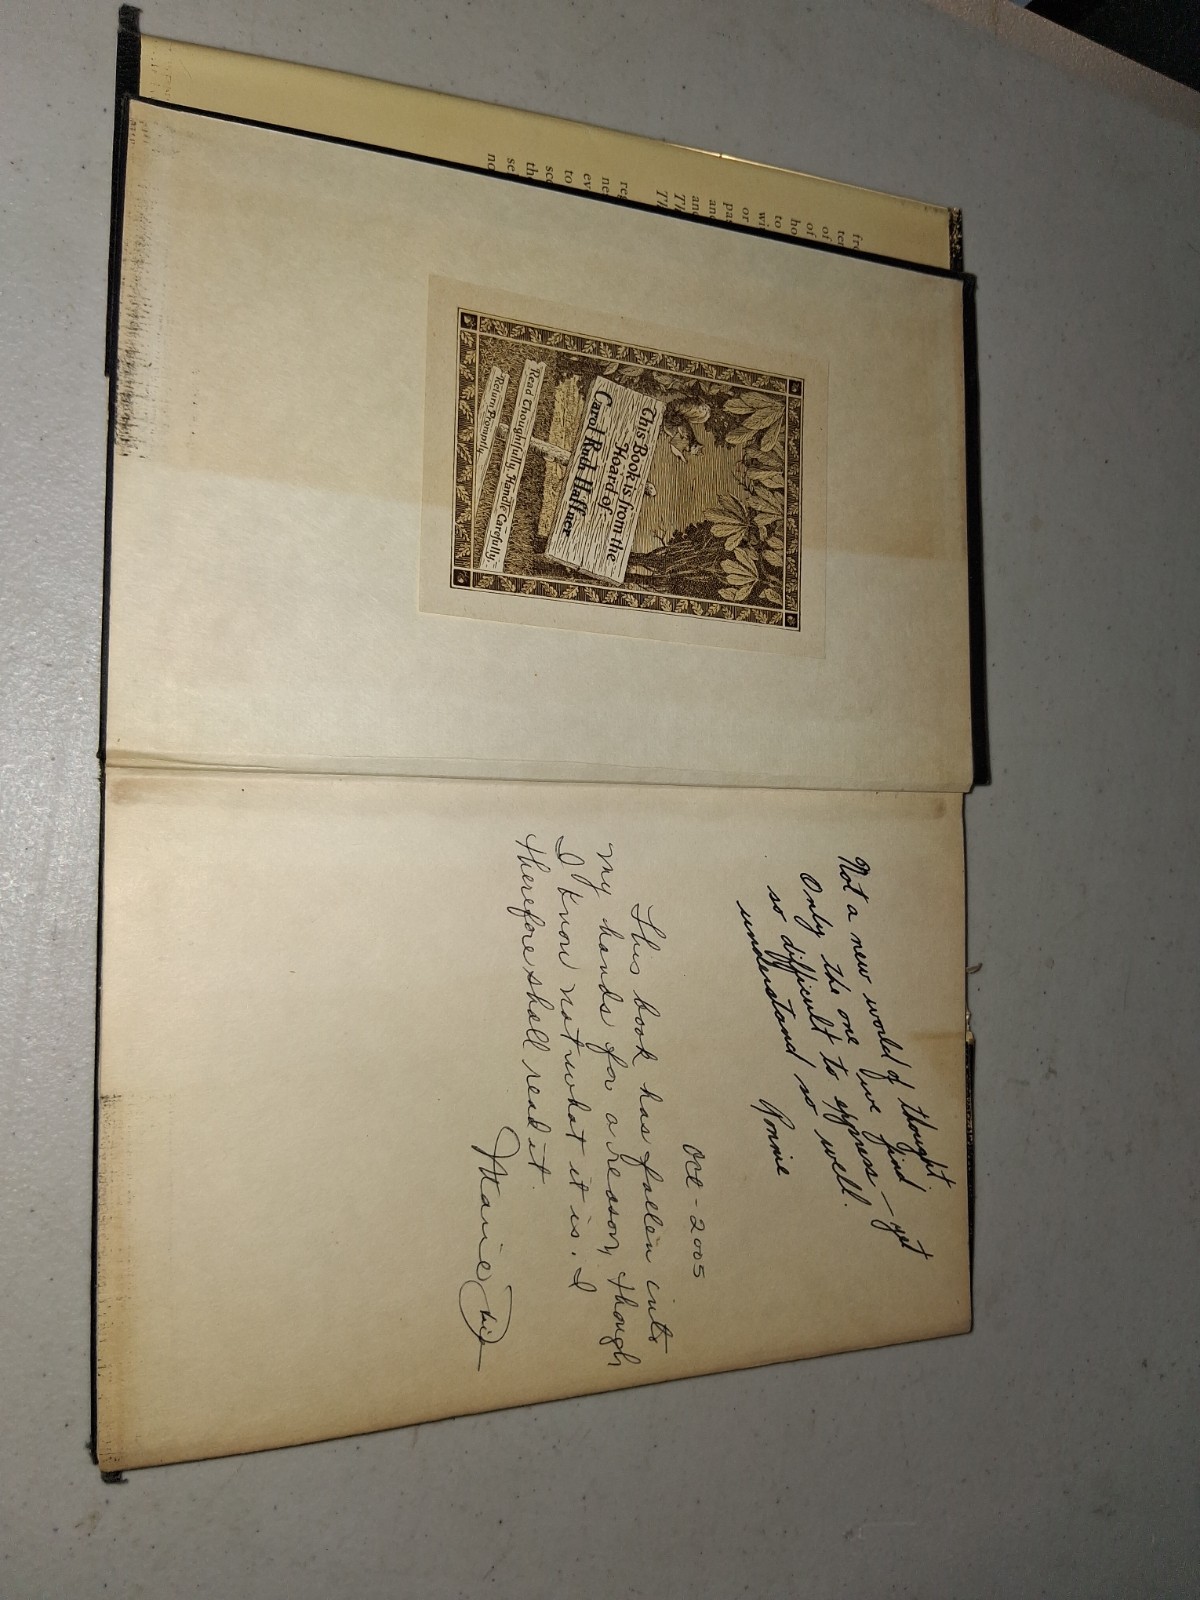 fro
te
of
of
ho
to
wi
or
pa
an
an
Th
Th
re
ne
ev
to
sc
th
se
no
This Book is from the
Hoard of
Carol Ruth Haffner
Read Thoughtfully, Handle Carefully,
Return Promptly
Not a new world of thought
Only the one we find - yet
so difficult to express
understand so well.
Ronnie
Oct - 2005
This book has fallen into
my hands for a reason, though
I know not what it is. I
therefore shall read it.
Marie